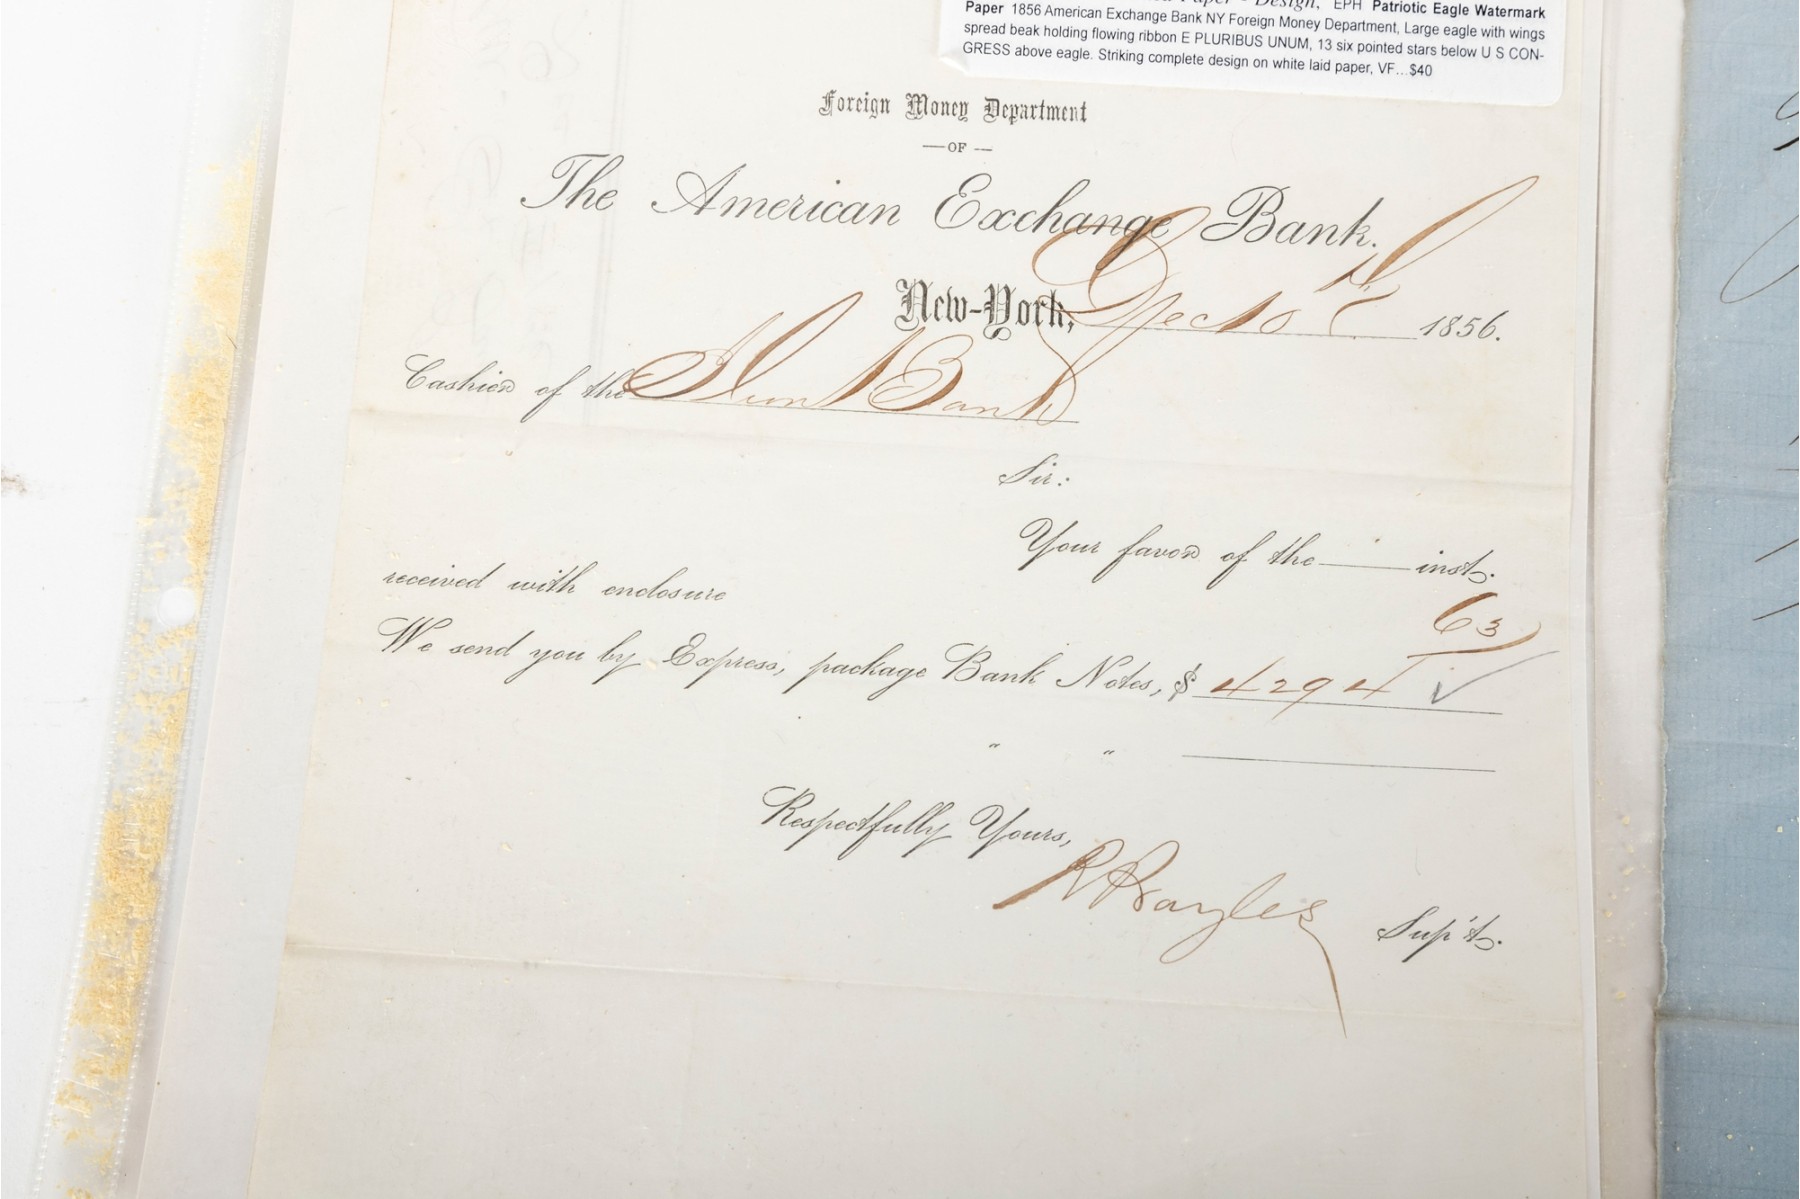 Paper - Design, EPH Patriotic Eagle Watermark
Paper 1856 American Exchange Bank NY Foreign Money Department, Large eagle with wings
spread beak holding flowing ribbon E PLURIBUS UNUM, 13 six pointed stars below U S CON-
GRESS above eagle. Striking complete design on white laid paper, VF...$40
Foreign Money Department
— OF —
The American Exchange Bank.
New-York, Dec 10 1856.
Cashier of the Bank
Sir:
Your favor of the inst.
received with enclosure
63
We send you by Express, package Bank Notes, $ 4294 ✓
" "
Respectfully Yours,
Sup't.